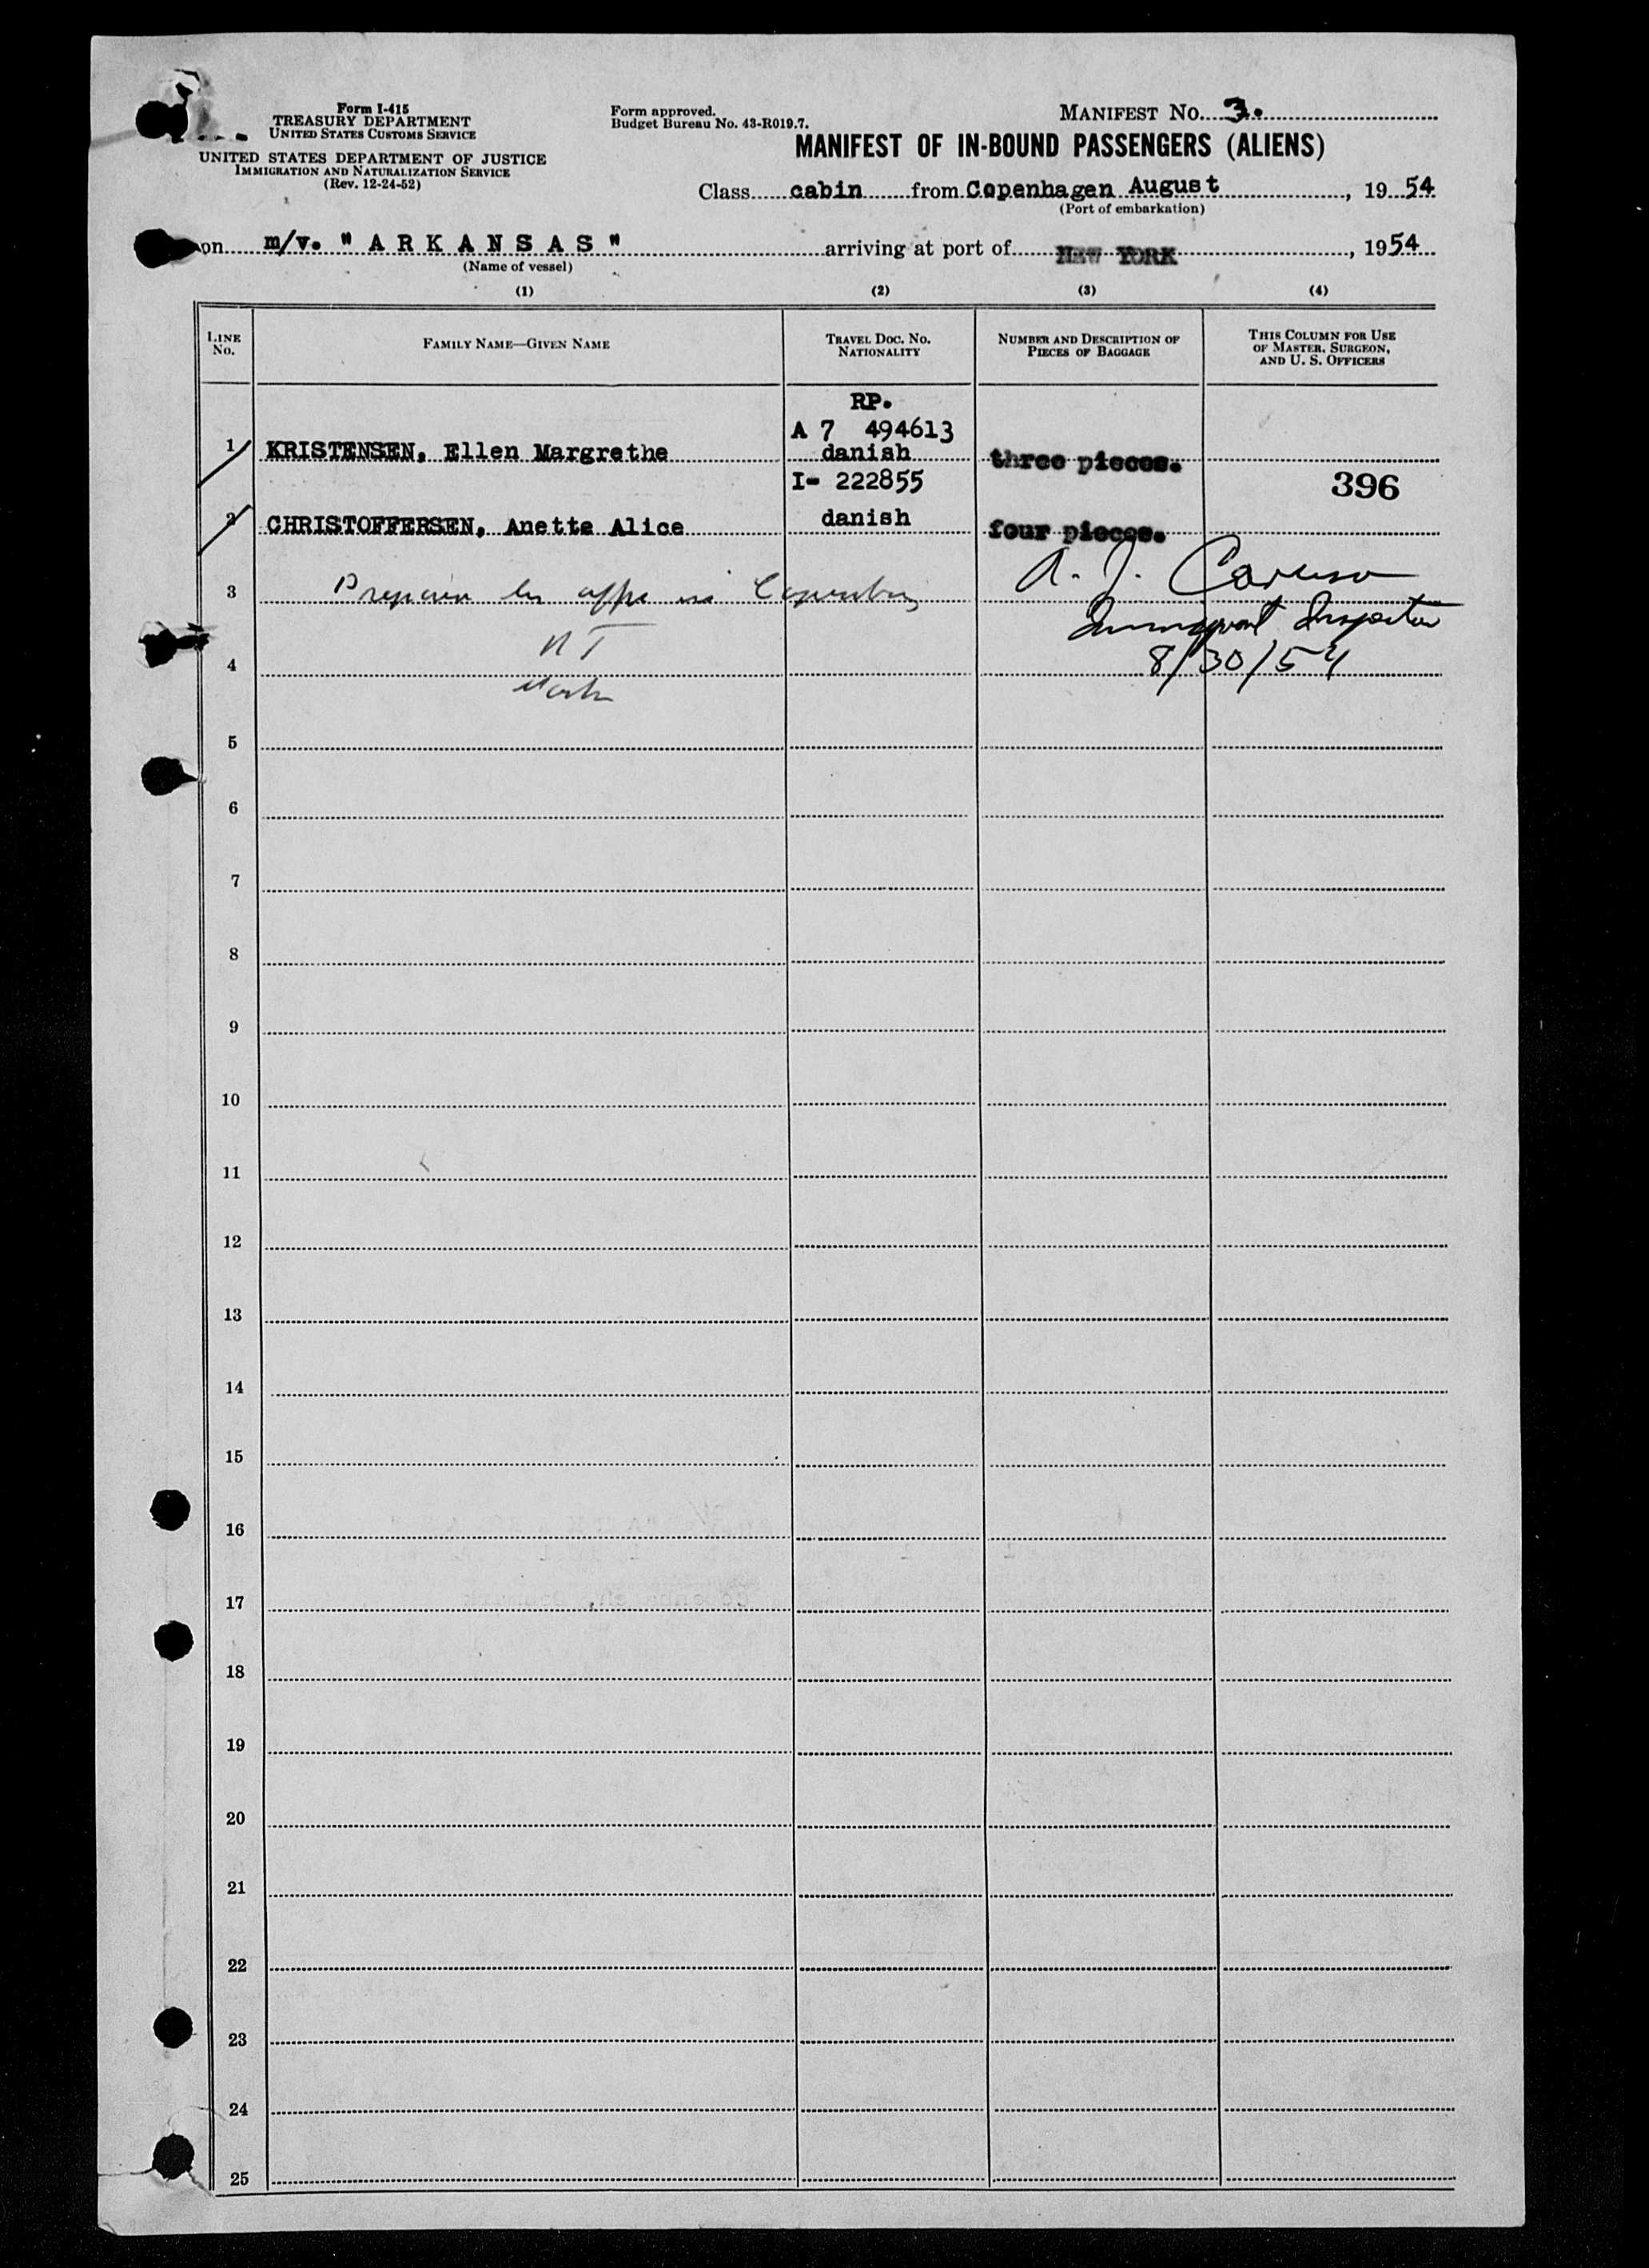 Form I-415
TREASURY DEPARTMENT
UNITED STATES CUSTOMS SERVICE
UNITED STATES DEPARTMENT OF JUSTICE
IMMIGRATION AND NATURALIZATION SERVICE
(Rev. 12-24-52)
Form approved.
Budget Bureau No. 43-R019.7.
MANIFEST No. 3.
MANIFEST OF IN-BOUND PASSENGERS (ALIENS)
Class cabin from Copenhagen August, 1954
(Port of embarkation)
on m/v. "ARKANSAS" arriving at port of NEW YORK, 1954
(Name of vessel)
(1) (2) (3) (4)
LINE No. FAMILY NAME—GIVEN NAME TRAVEL DOC. NO. NATIONALITY NUMBER AND DESCRIPTION OF PIECES OF BAGGAGE THIS COLUMN FOR USE OF MASTER, SURGEON, AND U. S. OFFICERS
RP.
A 7 494613
1 KRISTENSEN, Ellen Margrethe danish three pieces.
I- 222855 396
2 CHRISTOFFERSEN, Anette Alice danish four pieces.
A. J. Caruso
3
Immigrant Inspector
4 8/30/54
5
6
7
8
9
10
11
12
13
14
15
16
17
18
19
20
21
22
23
24
25